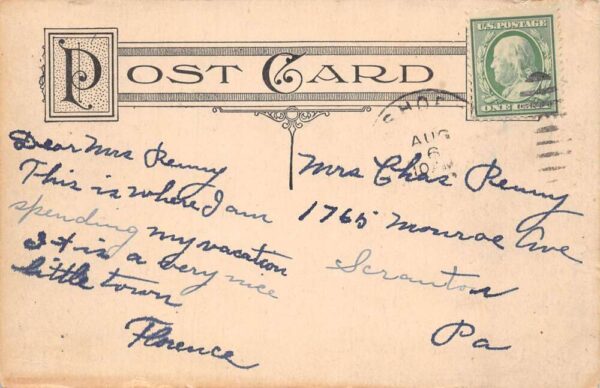 POST CARD
U.S. POSTAGE
ONE
AUG
6
Dear Mrs Renny
This is where I am
spending my vacation
It is a very nice
little town
Florence
Mrs Chas Renny
1765 Monroe Ave
Scranton
Pa